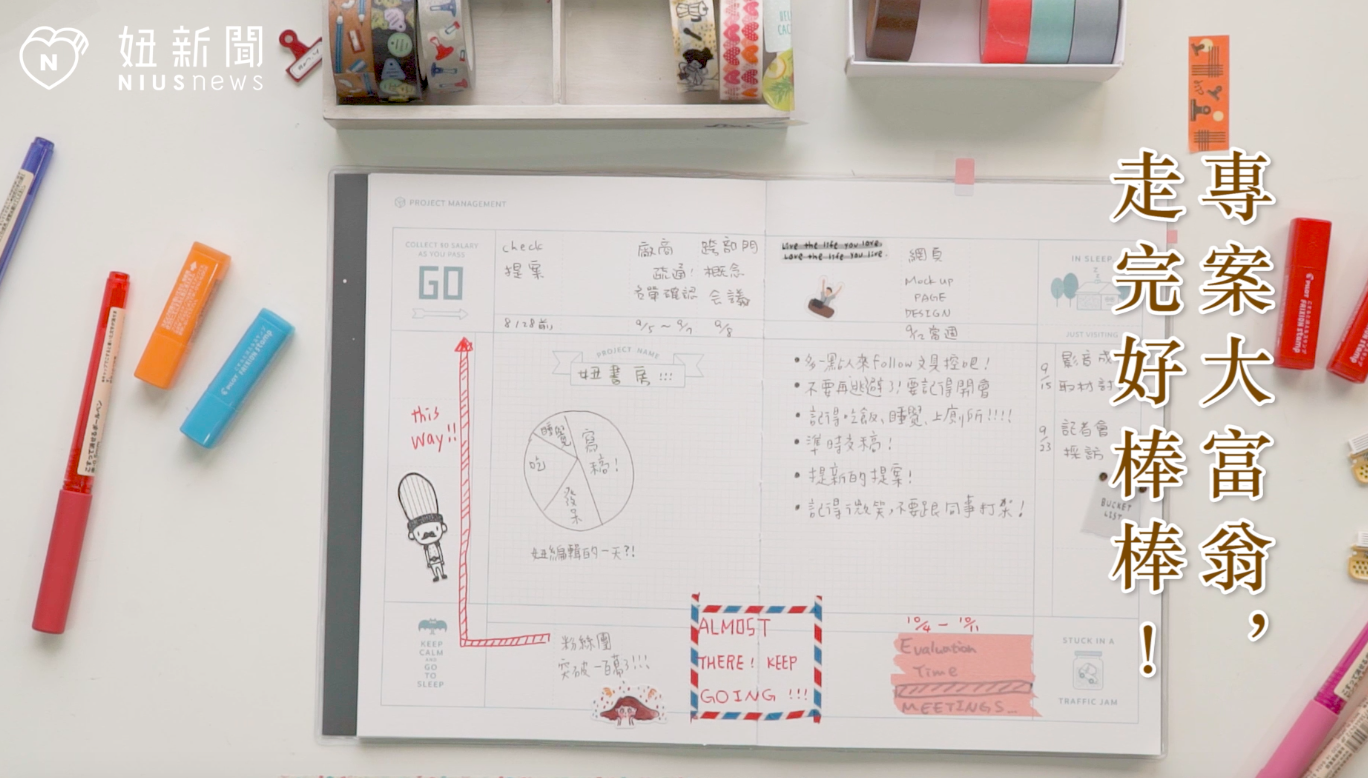 妞新聞
NIUSnews
專案大富翁，
走完好棒棒！
PROJECT MANAGEMENT
COLLECT $0 SALARY
AS YOU PASS
GO
check
提案
8/28前
廠商
疏通!
方單確認
9/5~9/7
跨部門
概念
会議
9/8
Live the life you love.
Love the life you live.
網頁
Mock up
PAGE
DESIGN
9/12當週
IN SLEEP
JUST VISITING
9/15
影音成
取材討
9/23
記者會
採訪
BUCKET
LIST
PROJECT NAME
妞書房!!!
this
way!!
睡覺
寫
稿!
吃
發
呆
妞編輯的一天?!
• 多一點人來follow文具控吧!
• 不要再逃避了!要記得開會
• 記得吃飯、睡覺、上廁所!!!!
• 準時交稿!
• 提新的提案!
• 記得微笑,不要跟同事打架!
KEEP
CALM
AND
GO
TO
SLEEP
粉絲團
突破一百萬了!!!
ALMOST
THERE! KEEP
GOING !!!
10/4 - 10/11
Evaluation
Time
MEETINGS_
STUCK IN A
TRAFFIC JAM
PILOT FRIXION stamp